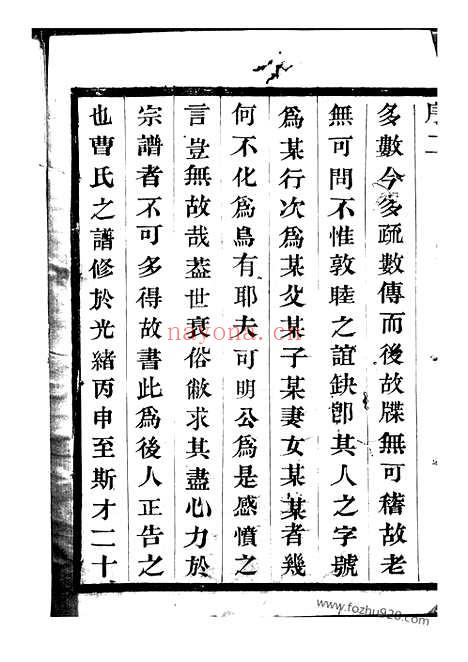 序二
多數今多疏數傳而後故牒無可稽故老
無可問不惟敦睦之誼缺卽其人之字號
爲某行次爲某父某子某妻女某某者幾
何不化爲烏有耶夫可明公爲是感憤之
言豈無故哉蓋世衰俗敝求其盡心力於
宗譜者不可多得故書此爲後人正告之
也曹氏之譜修於光緒丙申至斯才二十
nayona.cn
www.fozhu920.com